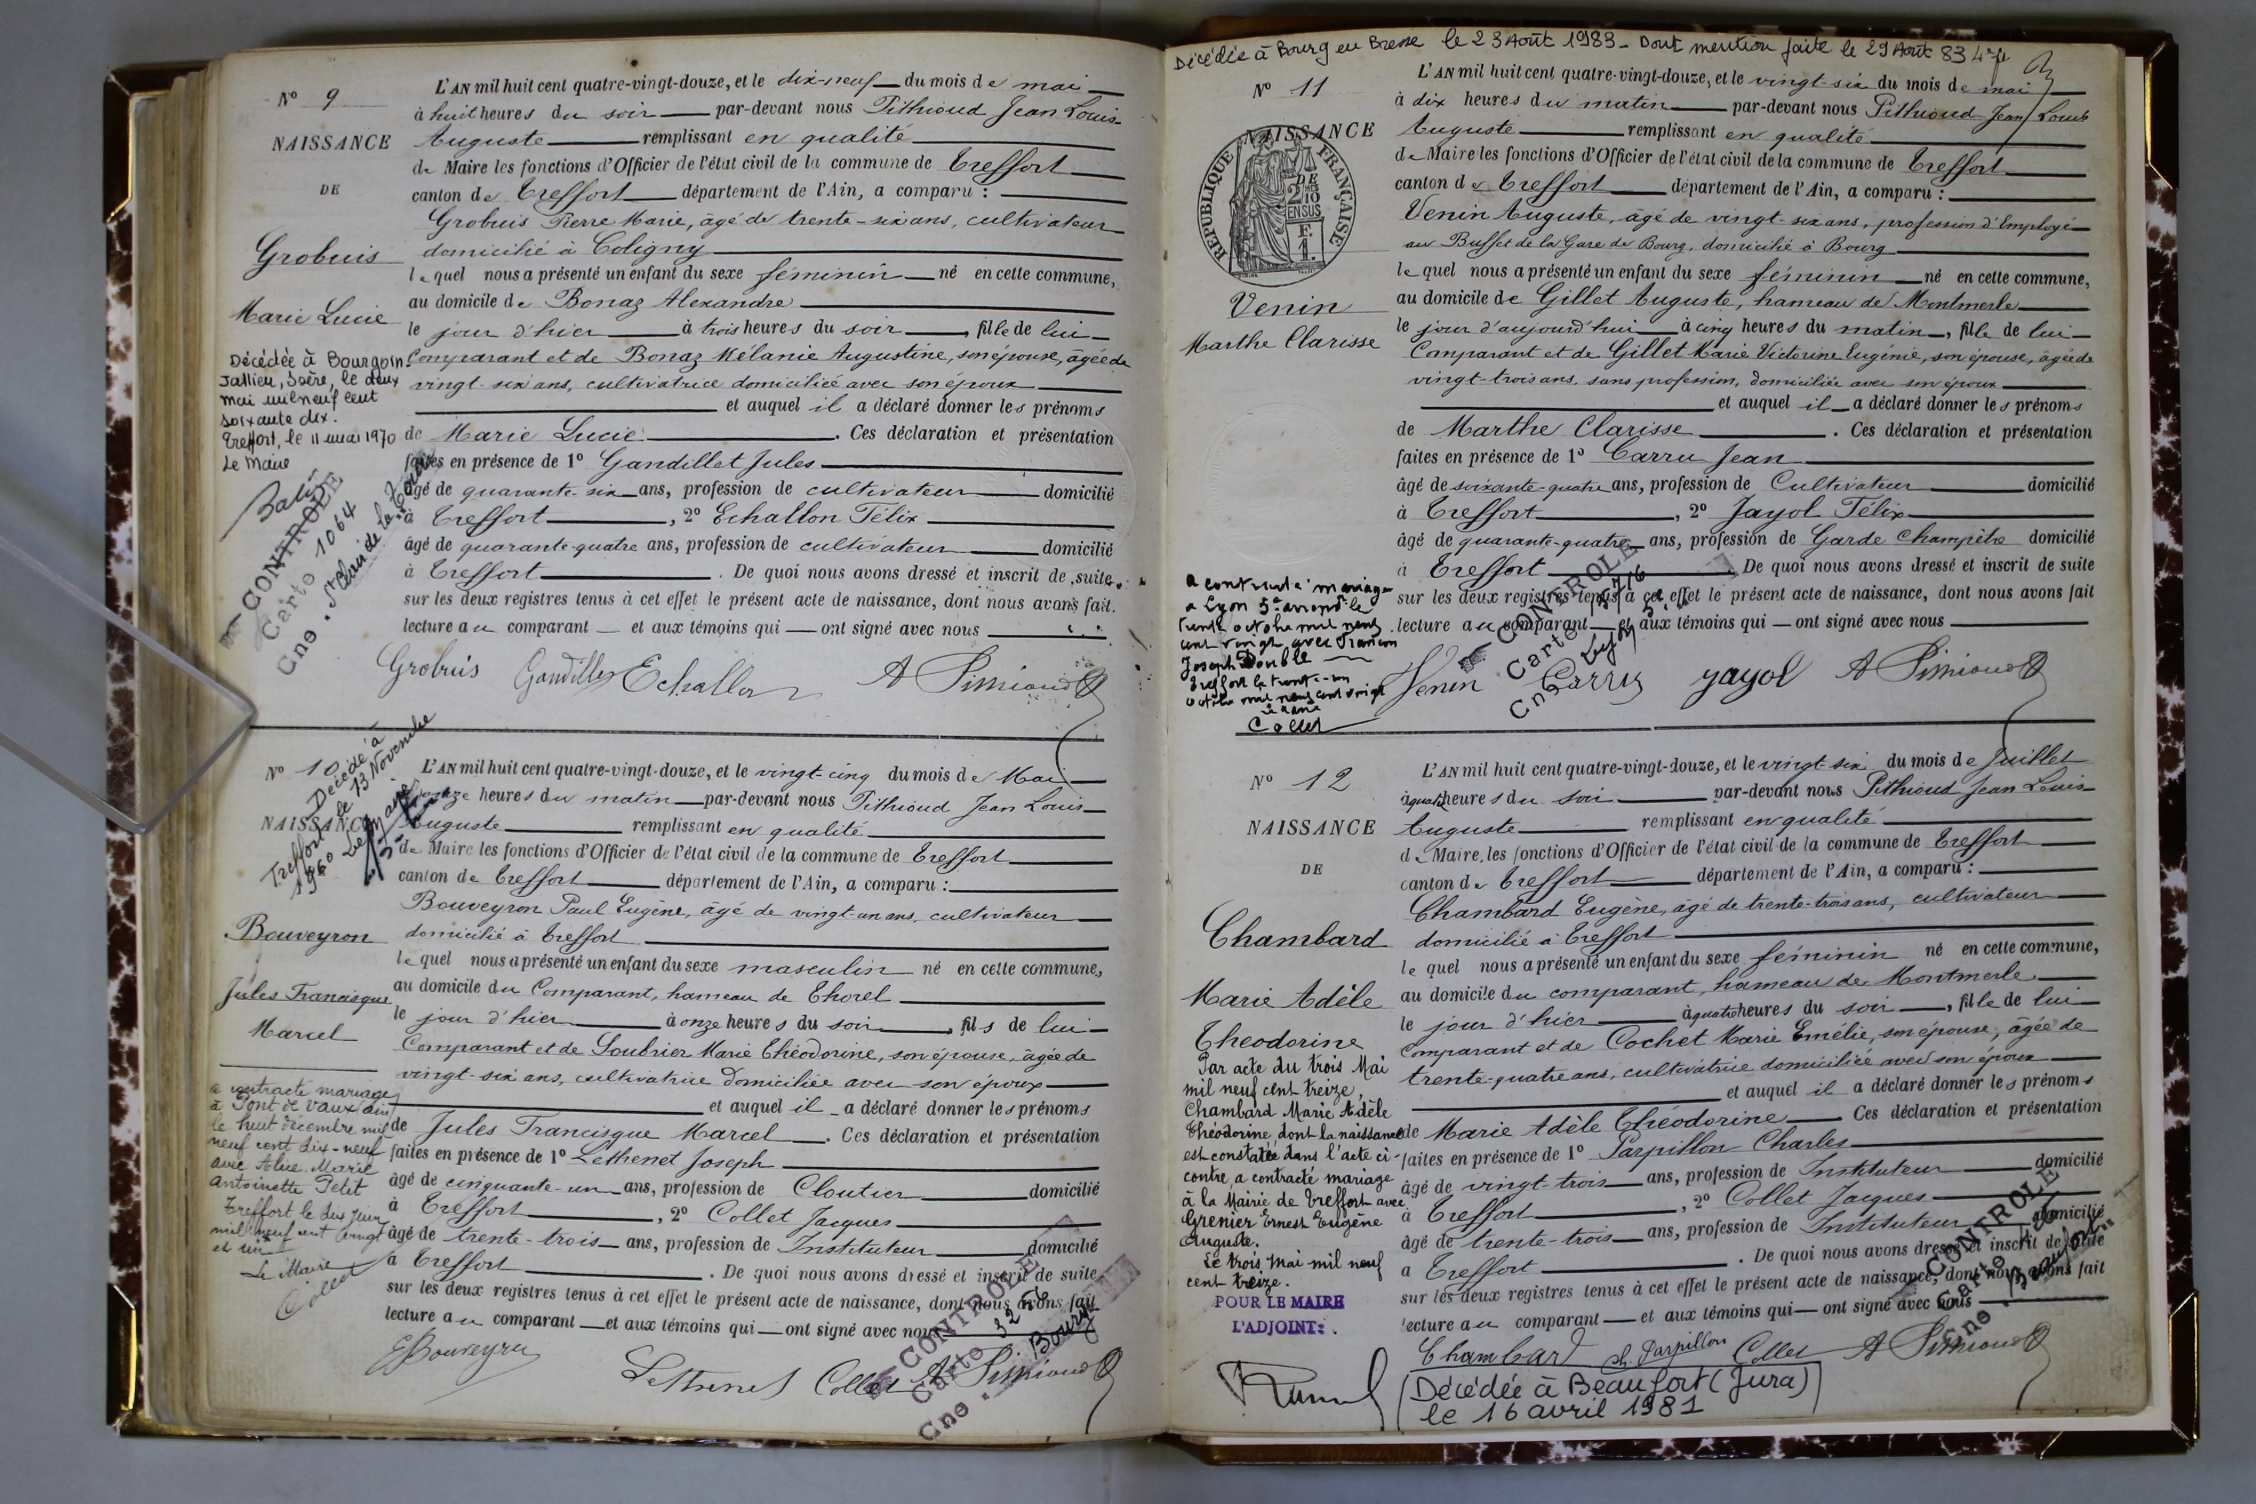 N° 9
NAISSANCE
DE
Grobuis
Marie Lucie
Décédée à Bourgoin
Jallieu, Isère, le deux
mai mil neuf cent
soixante dix.
Treffort, le 11 mai 1970
Le Maire
CONTROLE
Carte 1064
Cne. St Clair de la Tour
L'AN mil huit cent quatre-vingt-douze, et le dix-neuf du mois de mai
à huit heures du soir par-devant nous Pithioud Jean Louis
Auguste remplissant en qualité
de Maire les fonctions d'Officier de l'état civil de la commune de Treffort
canton de Treffort département de l'Ain, a comparu :
Grobuis Pierre Marie, âgé de trente-six ans, cultivateur
domicilié à Coligny
lequel nous a présenté un enfant du sexe féminin né en cette commune,
au domicile de Bonaz Alexandre
le jour d'hier à trois heures du soir, fille de lui
Comparant et de Bonaz Mélanie Augustine, son épouse, âgée de
vingt-six ans, cultivatrice domiciliée avec son époux
et auquel il a déclaré donner les prénoms
de Marie Lucie. Ces déclaration et présentation
faites en présence de 1° Gandillet Jules
âgé de quarante-six ans, profession de cultivateur domicilié
à Treffort, 2° Echallon Félix
âgé de quarante-quatre ans, profession de cultivateur domicilié
à Treffort. De quoi nous avons dressé et inscrit de suite
sur les deux registres tenus à cet effet le présent acte de naissance, dont nous avons fait
lecture au comparant et aux témoins qui ont signé avec nous
Grobuis Gandillet Echallon A Pithioud
N° 10
Décédé à
Treffort le 13 Novembre
1960 Le Maire
NAISSANCE
Bouveyron
Jules Francisque
Marcel
a contracté mariage
à Pont de Vaux (Ain)
le huit décembre mil
neuf cent dix-neuf
avec Alice Marie
Antoinette Petit
Treffort le dix juin
mil neuf cent vingt
et un
Le Maire
Collet
L'AN mil huit cent quatre-vingt-douze, et le vingt-cinq du mois de Mai
à onze heures du matin par-devant nous Pithioud Jean Louis
Auguste remplissant en qualité
de Maire les fonctions d'Officier de l'état civil de la commune de Treffort
canton de Treffort département de l'Ain, a comparu :
Bouveyron Paul Eugène, âgé de vingt-un ans, cultivateur
domicilié à Treffort
lequel nous a présenté un enfant du sexe masculin né en cette commune,
au domicile du Comparant, hameau de Thorel
le jour d'hier à onze heures du soir, fils de lui
Comparant et de Soubrier Marie Théodorine, son épouse, âgée de
vingt-six ans, cultivatrice domiciliée avec son époux
et auquel il a déclaré donner les prénoms
de Jules Francisque Marcel. Ces déclaration et présentation
faites en présence de 1° Lethenet Joseph
âgé de cinquante-un ans, profession de Cloutier domicilié
à Treffort, 2° Collet Jacques
âgé de trente-trois ans, profession de Instituteur domicilié
à Treffort. De quoi nous avons dressé et inscrit de suite
sur les deux registres tenus à cet effet le présent acte de naissance, dont nous avons fait
lecture au comparant et aux témoins qui ont signé avec nous
CONTROLE
Carte
Cne. Bourg
Bouveyron Lethenet Collet A Pithioud
Décédée à Bourg en Bresse le 23 Août 1983 - Dont mention faite le 29 Août 83
N° 11
NAISSANCE
DE
REPUBLIQUE FRANÇAISE
2/10 EN SUS
F. 1.
Venin
Marthe Clarisse
a contracté mariage
à Lyon 5e arrondt le
trente octobre mil neuf
cent vingt avec François
Joseph Double
Treffort le trente-un
octobre mil neuf cent vingt
Le Maire
Collet
L'AN mil huit cent quatre-vingt-douze, et le vingt-six du mois de mai
à dix heures du matin par-devant nous Pithioud Jean Louis
Auguste remplissant en qualité
de Maire les fonctions d'Officier de l'état civil de la commune de Treffort
canton de Treffort département de l'Ain, a comparu :
Venin Auguste, âgé de vingt-six ans, profession d'Employé
au Buffet de la Gare de Bourg, domicilié à Bourg
lequel nous a présenté un enfant du sexe féminin né en cette commune,
au domicile de Gillet Auguste, hameau de Montmerle
le jour d'aujourd'hui à cinq heures du matin, fille de lui
Comparant et de Gillet Marie Victorine Eugénie, son épouse, âgée de
vingt-trois ans, sans profession, domiciliée avec son époux
et auquel il a déclaré donner les prénoms
de Marthe Clarisse. Ces déclaration et présentation
faites en présence de 1° Carru Jean
âgé de soixante-quatre ans, profession de Cultivateur domicilié
à Treffort, 2° Jayol Félix
âgé de quarante-quatre ans, profession de Garde Champêtre domicilié
à Treffort. De quoi nous avons dressé et inscrit de suite
sur les deux registres tenus à cet effet le présent acte de naissance, dont nous avons fait
lecture au comparant et aux témoins qui ont signé avec nous
CONTROLE
Carte
Cne Lyon
Venin Carru Jayol A Pithioud
N° 12
NAISSANCE
DE
Chambard
Marie Adèle
Théodorine
Par acte du trois Mai
mil neuf cent treize,
Chambard Marie Adèle
Théodorine dont la naissance
est constatée dans l'acte ci-
contre a contracté mariage
à la Mairie de Treffort avec
Grenier Ernest Eugène
Auguste.
Le trois Mai mil neuf
cent treize.
POUR LE MAIRE
L'ADJOINT:
L'AN mil huit cent quatre-vingt-douze, et le vingt-six du mois de Juillet
à quatre heures du soir par-devant nous Pithioud Jean Louis
Auguste remplissant en qualité
de Maire les fonctions d'Officier de l'état civil de la commune de Treffort
canton de Treffort département de l'Ain, a comparu :
Chambard Eugène, âgé de trente-trois ans, cultivateur
domicilié à Treffort
lequel nous a présenté un enfant du sexe féminin né en cette commune,
au domicile du comparant, hameau de Montmerle
le jour d'hier à quatre heures du soir, fille de lui
Comparant et de Cochet Marie Emélie, son épouse, âgée de
trente-quatre ans, cultivatrice domiciliée avec son époux
et auquel il a déclaré donner les prénoms
de Marie Adèle Théodorine. Ces déclaration et présentation
faites en présence de 1° Parpillon Charles
âgé de vingt-trois ans, profession de Instituteur domicilié
à Treffort, 2° Collet Jacques
âgé de trente-trois ans, profession de Instituteur domicilié
à Treffort. De quoi nous avons dressé et inscrit de suite
sur les deux registres tenus à cet effet le présent acte de naissance, dont nous avons fait
lecture au comparant et aux témoins qui ont signé avec nous
CONTROLE
Carte
Cne. Beaufort
Chambard Ch. Parpillon Collet A Pithioud
Décédée à Beaufort (Jura)
le 16 avril 1981